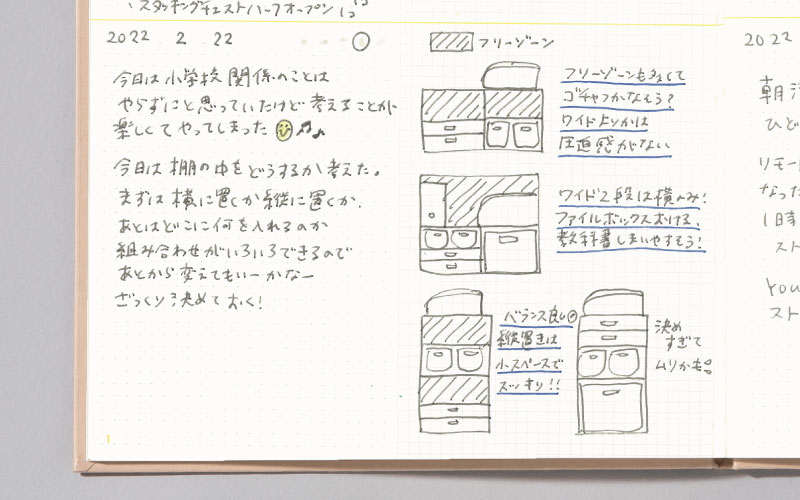 スタッキングチェストハーフオープン
2022. 2. 22
今日は小学校関係のことは
やらずにと思っていたけど考えることが
楽しくてやってしまった
今日は棚の中をどうするか考えた。
まずは横に置くか縦に置くか。
あとはどこに何を入れるのか
組み合わせがいろいろできるので
あとから変えてもいーかなー
ざっくり決めておく!
フリーゾーン
フリーゾーンも多くて
ゴチャつかなそう?
ワイドよりかは
圧迫感がない
ワイド2段は横のみ!
ファイルボックスおける、
教科書しまいやすそう!
バランス良し
縦置きは
小スペースで
スッキリ!!
決め
すぎて
ムリかも
2022
朝
ひど
リモー
なった
1日時
スト
You
スト